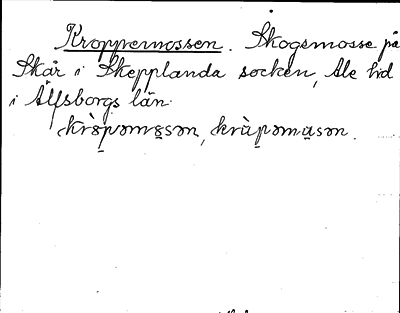 Kroppemossen. Skogsmosse på
Skår i Skepplanda socken, Ale hd
i Älfsborgs län.
kròpəmosən, krùpəmusən.